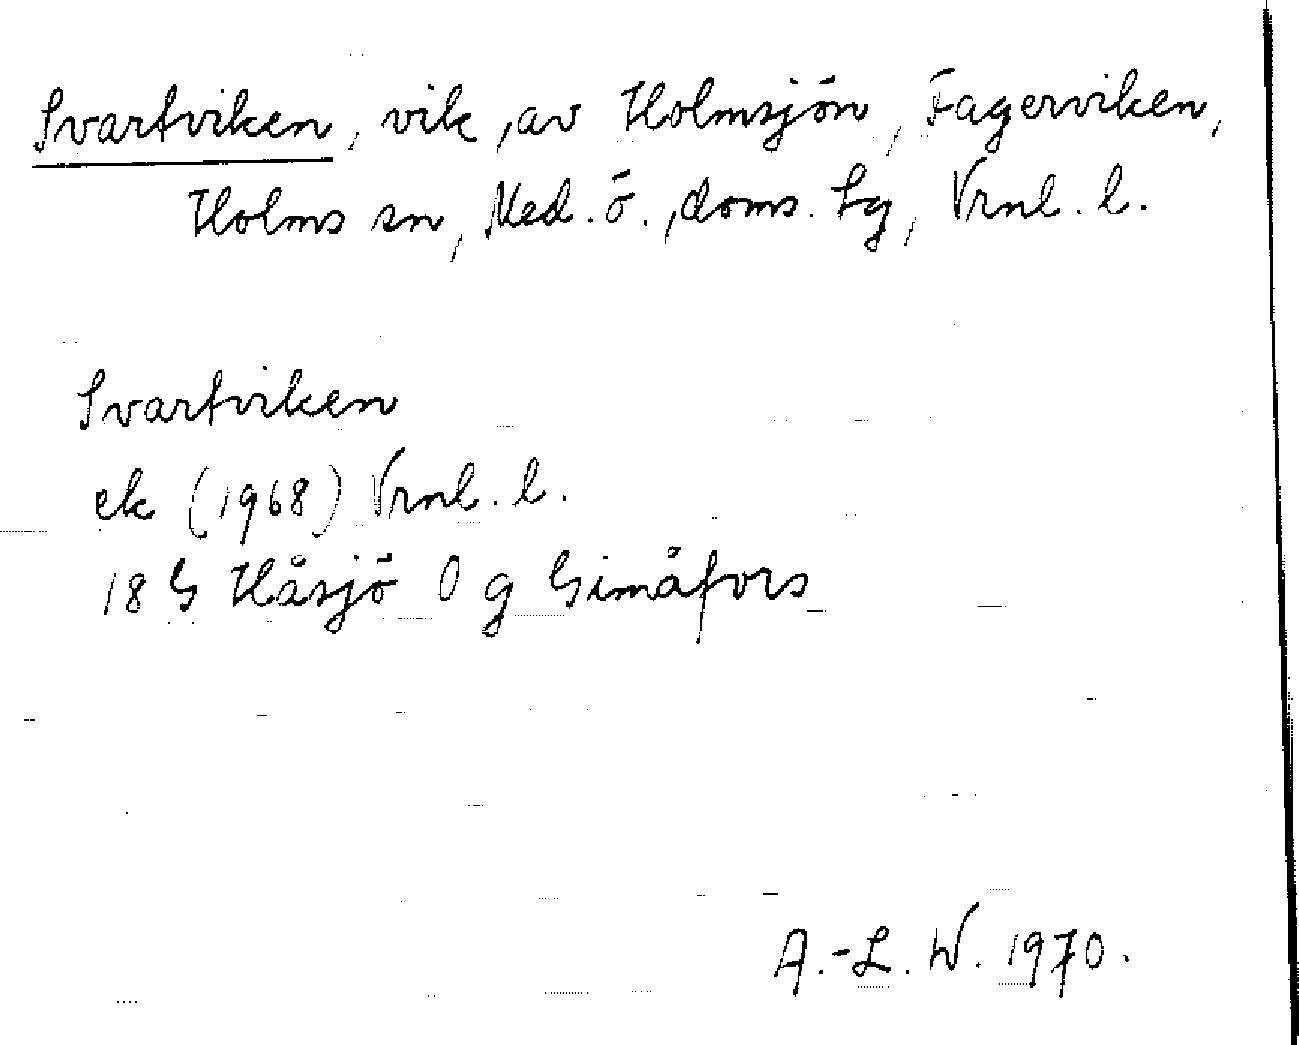 Svartviken, vik, av Holmsjön, Fagerviken,
Holms sn, Med. ö., doms. Lg, Vrnl. l.
Svartviken
ek (1968) Vrnl. l.
18 G Håsjö 0 g Gimåfors
A.-L. W. 1970.